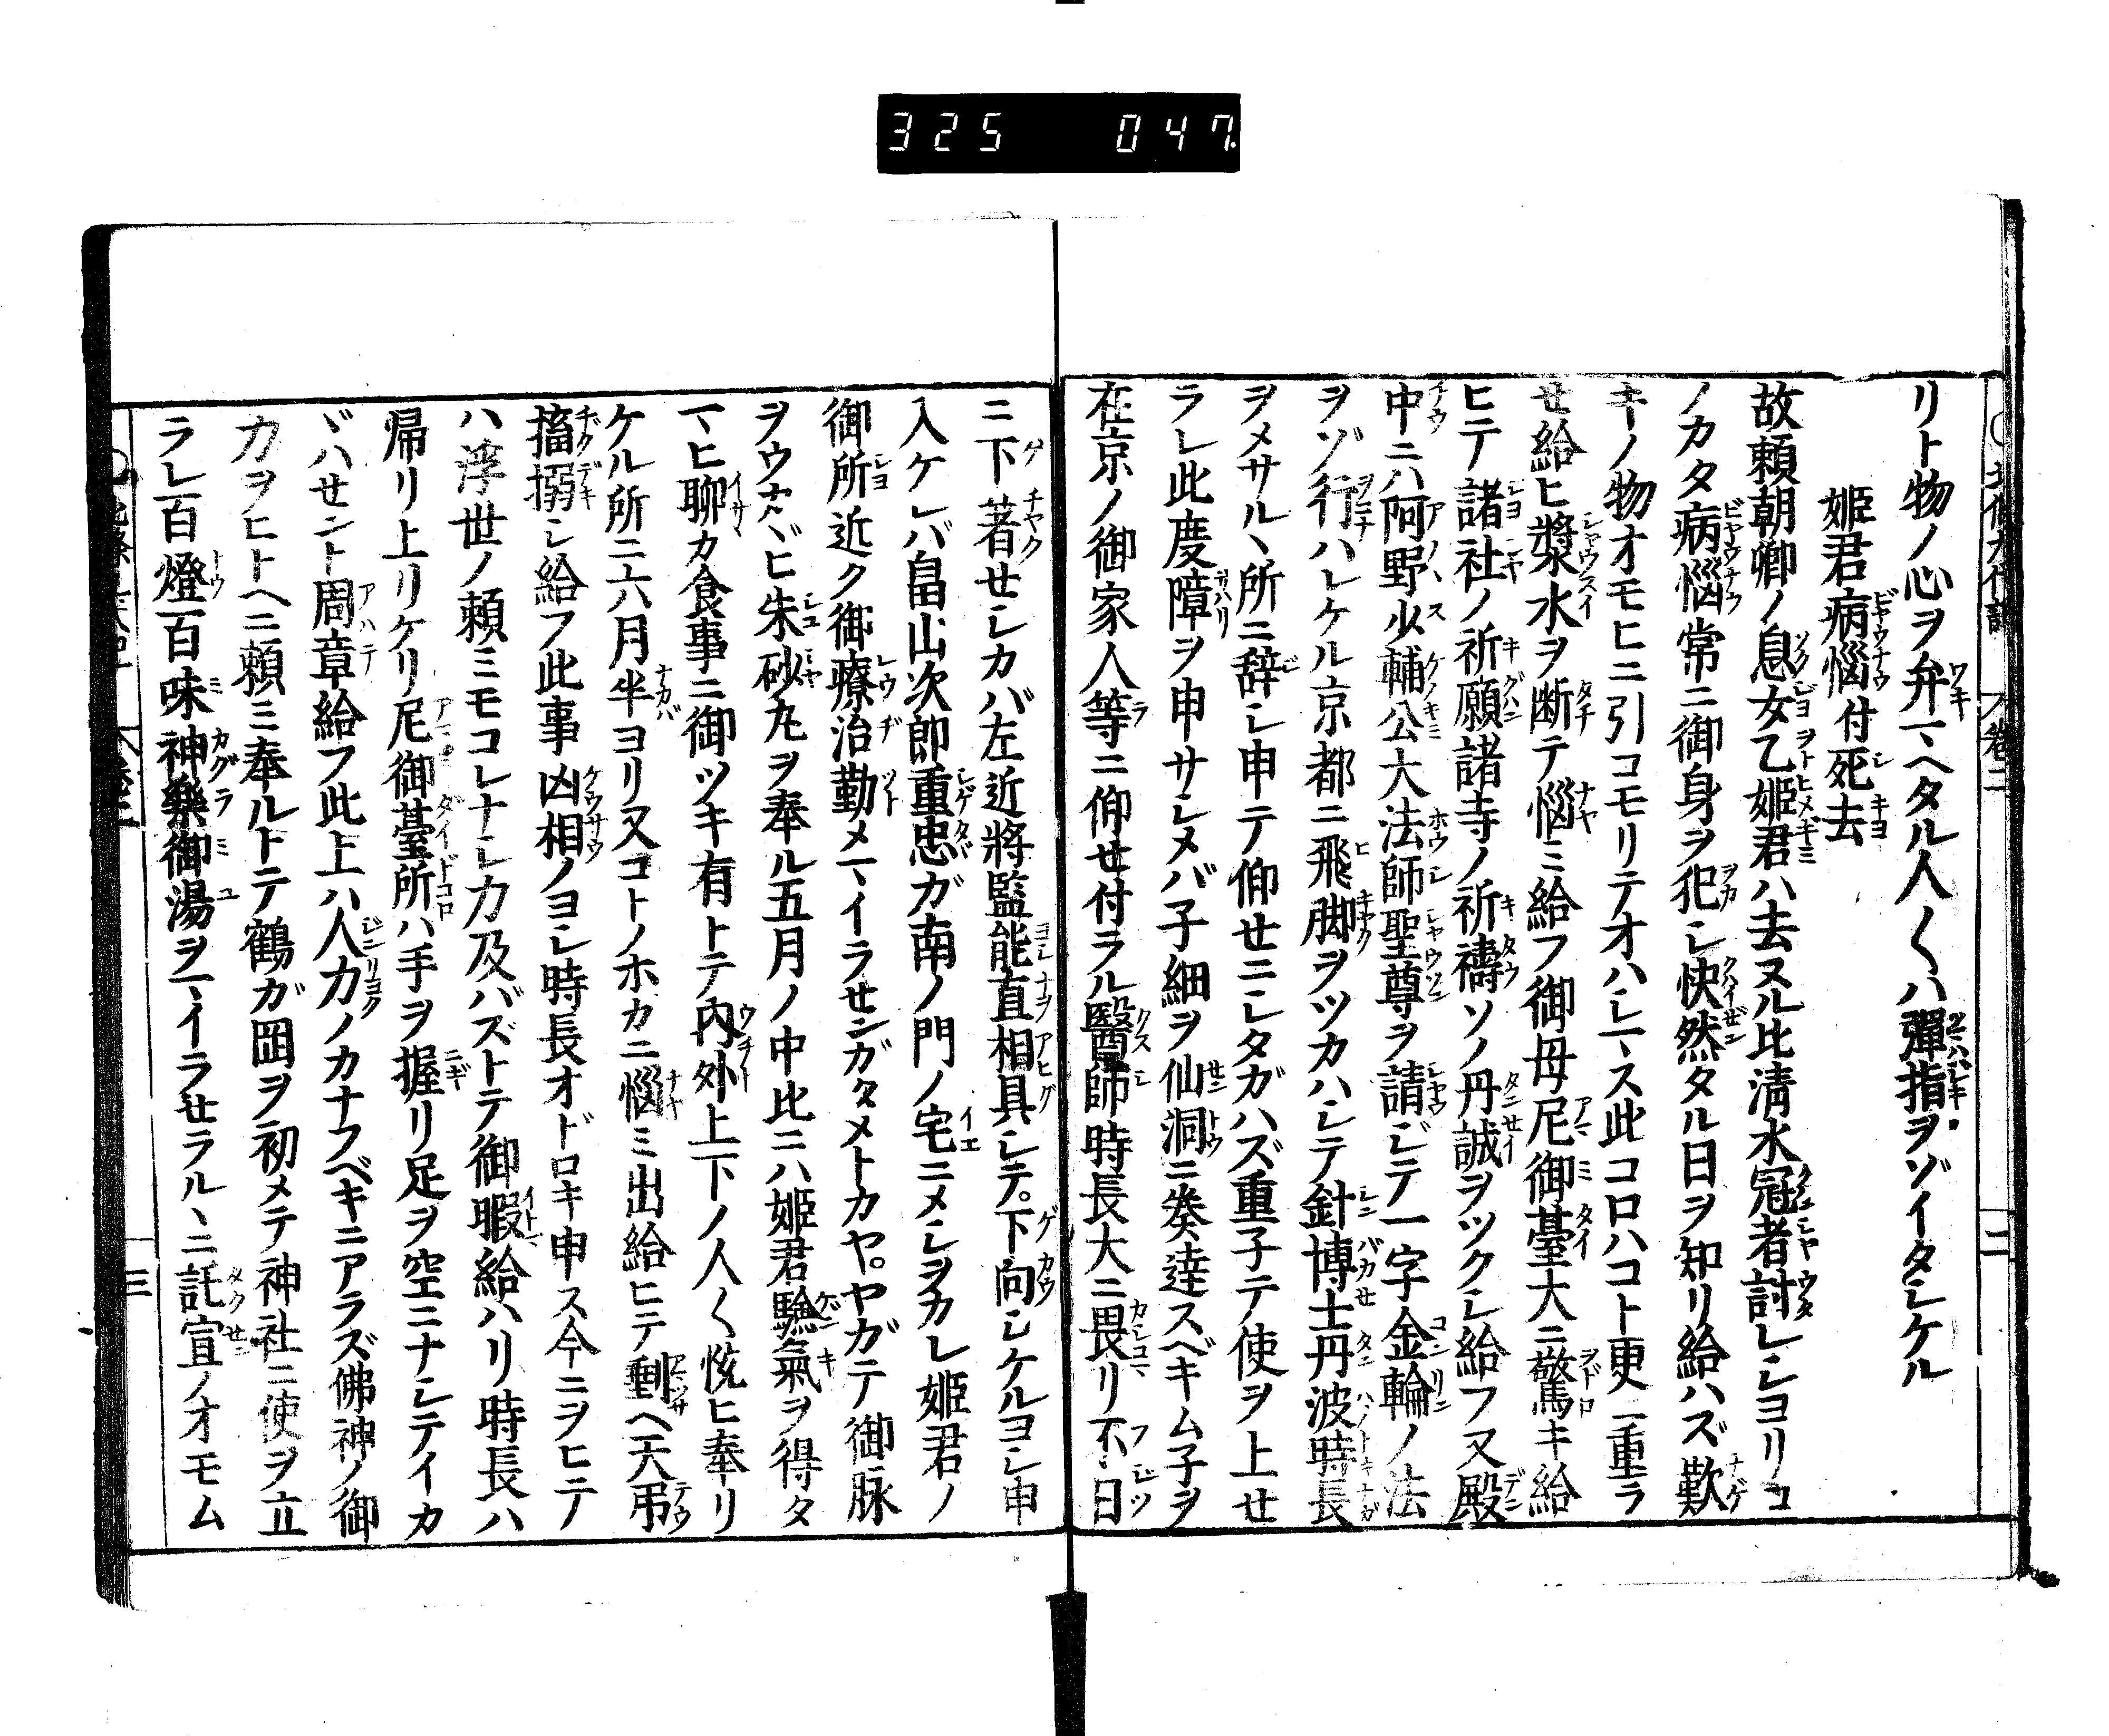 325 047
リト物ノ心ヲ弁マヘタル人〱ハ彈指ヲゾイタシケル
姫君病惱付死去
故頼朝卿ノ息女乙姫君ハ去ヌル比淸水冠者討レシヨリコ
ノカタ病惱常ニ御身ヲ犯シ快然タル日ヲ知リ給ハズ歎
キノ物オモヒニ引コモリテオハシマス此コロハコト更ニ重ラ
せ給ヒ漿水ヲ断テ惱ミ給フ御母尼御臺大ニ驚キ給
ヒテ諸社ノ祈願諸寺ノ祈禱ソノ丹誠ヲツクシ給フ又殿
中ニハ阿野少輔公大法師聖尊ヲ請ジテ一字金輪ノ法
ヲゾ行ハレケル京都ニ飛脚ヲツカハシテ針博士丹波時長
ヲメサルヽ所ニ辞シ申テ仰せニシタガハズ重子テ使ヲ上せ
ラレ此度障ヲ申サシメバ子細ヲ仙洞ニ奏達スベキム子ヲ
在京ノ御家人等ニ仰せ付ラル醫師時長大ニ畏リ不日
ニ下著せシカバ左近將監能直相具シテ下向シケルヨシ申
入ケレバ畠山次郎重忠ガ南ノ門ノ宅ニメシヲカレ姫君ノ
御所近ク御療治勤メマイラせンガタメトカヤヤガテ御脉
ヲウカヾヒ朱砂丸ヲ奉ル五月ノ中比ニハ姫君驗氣ヲ得タ
マヒ聊カ食事ニ御ツキ有トテ內外上下ノ人〱悦ヒ奉リ
ケル所ニ六月半ヨリ又コトノホカニ惱ミ出給ヒテ剰ヘ天弔
搐搦シ給フ此事凶相ノヨシ時長オドロキ申ス今ニヲヒテ
ハ浮世ノ頼ミモコレナシ力及バズトテ御暇給ハリ時長ハ
帰リ上リケリ尼御臺所ハ手ヲ握リ足ヲ空ニナシテイカ
ヾハせント周章給フ此上ハ人力ノカナフベキニアラズ佛神ノ御
力ヲヒトヘニ頼ミ奉ルトテ鶴ガ岡ヲ初メテ神社ニ使ヲ立
ラレ百燈百味神樂御湯ヲマイラせラルヽニ託宣ノオモム